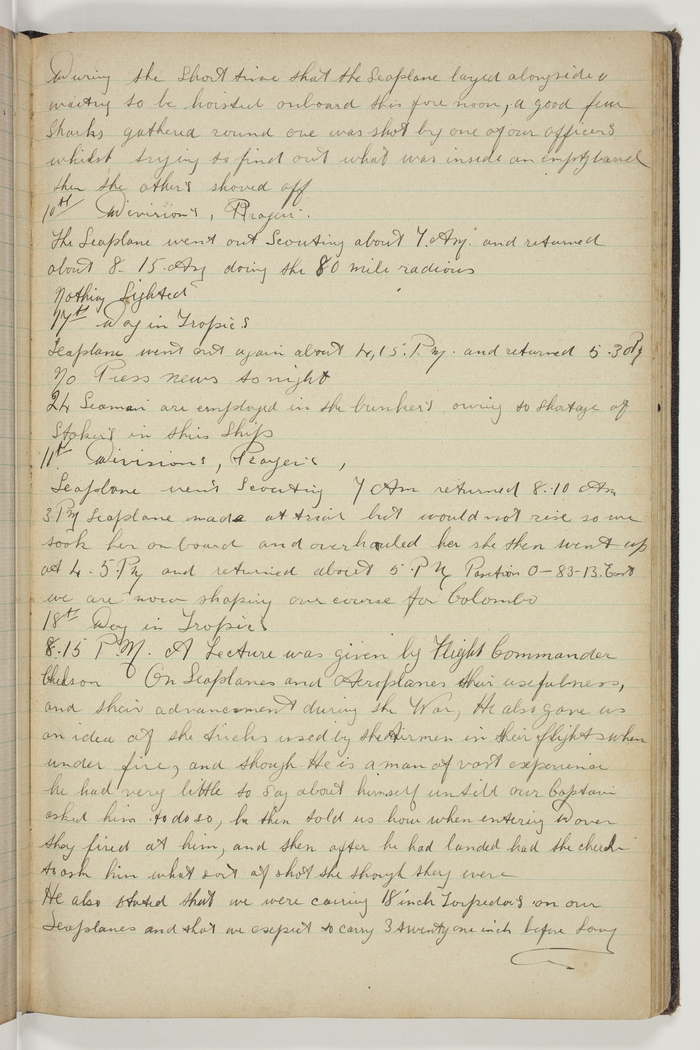 During the Short time that the Seaplane layed alongside
waiting to be hoisted onboard this fore noon, a good few
Sharks gathered round one was shot by one of our officers
whilst trying to find out what was inside an empty barrel
then the other's shoved off
10th Division's, Prayers.
The Seaplane went out Scouting about 7. Am. and returned
about 8-15. Am doing the 80 mile radious
Nothing Sighted
17th Day in Tropics
Seaplane went out again about 4,15. P.M. and returned 5.30 PM
No Press news tonight
24 Seaman are employed in the bunkers owing to shortage of
Stokers in this Ship
11th Divisions, Prayers,
Seaplane went Scouting 7 Am returned 8.10 Am
3 PM Seaplane made at trial but would not rise so we
took her on board and overhauled her she then went up
at 4.5. PM and returned about 5 PM Position 0-83-13. East
we are now shaping our course for Colombo
18th Day in Tropics
8.15 P.M. A Lecture was given by Flight Commander
On Seaplanes and Aeroplanes their usefulness,
and their advancement during the War, He also gave us
an idea of the tricks used by the Airmen in their flights when
under fire, and though He is a man of vast experience
he had very little to Say about himself untill our Captain
asked him to do so, he then told us how when entering Dover
they fired at him, and then after he had landed had the cheek
to ask him what sort of shot she though they were
He also stated that we were carring 18 inch Torpedo's on our
Seaplanes and that we expect to carry 3 twenty one inch before long